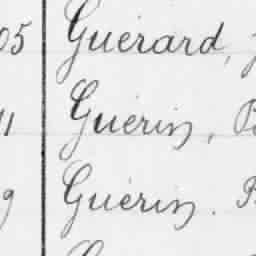 05 Guérard,
11 Guérin,
9 Guérin.